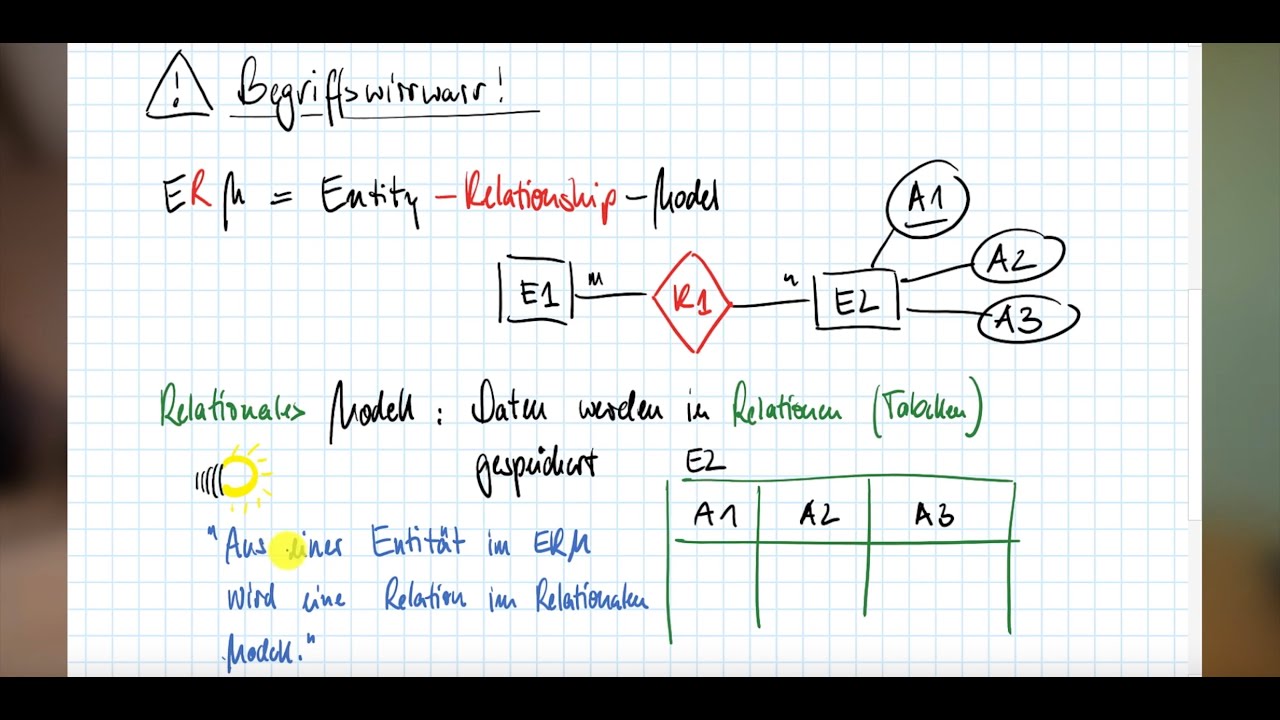 ! Begriffswirrwarr!
ERM = Entity-Relationship-Model
E1 m R1 n E2
A1
A2
A3
Relationales Modell: Daten werden in Relationen (Tabellen)
gespeichert
E2
A1 A2 A3
"Aus einer Entität im ERM
wird eine Relation im Relationalen
Modell."